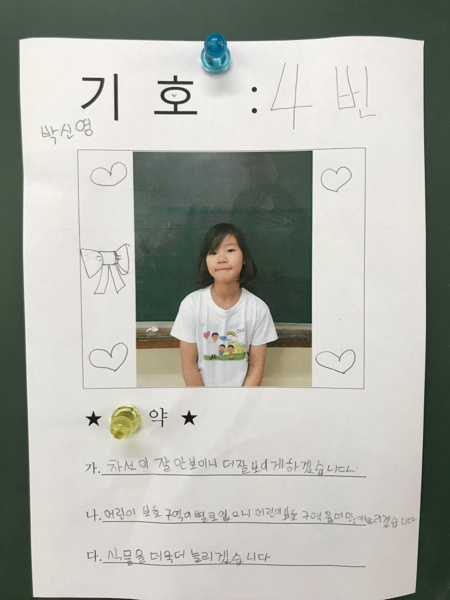 기 호 : 4 번
박신영
★ 약 ★
가. 차선이 잘 안보이니 더잘보이게하겠습니다.
나. 어린이 보호 구역이별로없으니 어린이보호 구역을더많이늘리겠습니다
다. 식물을 더욱더 늘리겠습니다